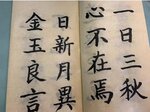 一日三秋
心不在焉
日新月異
金玉良言